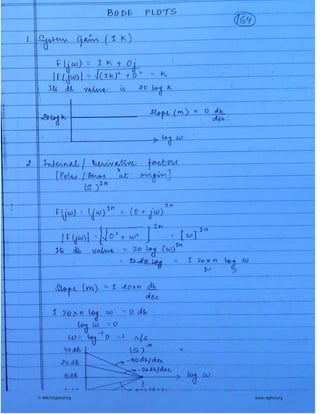 BODE PLOTS
164
1. System Gain (± K)
F(jω) = ± K + 0j
|F(jω)| = √(±K)² + 0² = K
Its db value is 20 log K
20logK
Slope (m) = 0 db/dec
→ log ω
2. Integral / Derivative factors
[Poles / Zeros at origin]
(S)±n
F(jω) = (jω)±n = (0 + jω)±n
|F(jω)| = |√0² + ω²|±n = [ω]±n
Its db value = 20 log (ω)±n
= ± 20 x n log ω
Slope (m) = ± 20xn db/dec
± 20xn log ω = 0 db
log ω = 0
ω = log⁻¹ 0 = 1 r/s
40 dB
(S)⁻ⁿ
-40db/dec
20 dB
-20db/dec
0dB
→ log ω
www.raghul.org